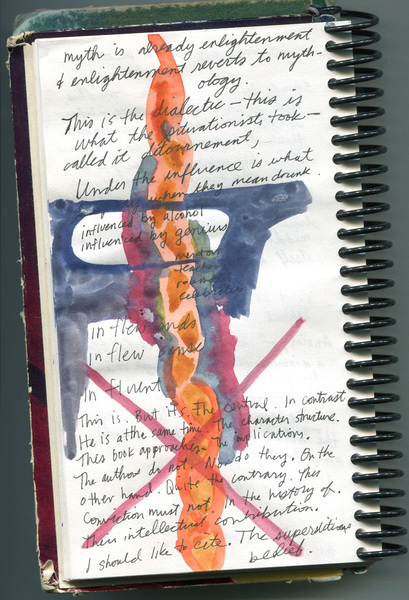 myth is already enlightenment
& enlightenment reverts to myth-
ology.
This is the dialectic — this is
what the situationists took —
called it detournement,
Under the influence is what
when they mean drunk.
influenced by alcohol
influenced by genius
mentors
teachers
celebrities
In flew ends
In flew ense
In fluent
This is. But it's. The central. In contrast
He is at the same time. The character structure.
This book approaches. The implications.
The authors do not. Nor do they. On the
other hand. Quite the contrary. This
Conviction must not. In the history of.
Their intellectual contribution.
I should like to cite. The superstitious
belief.